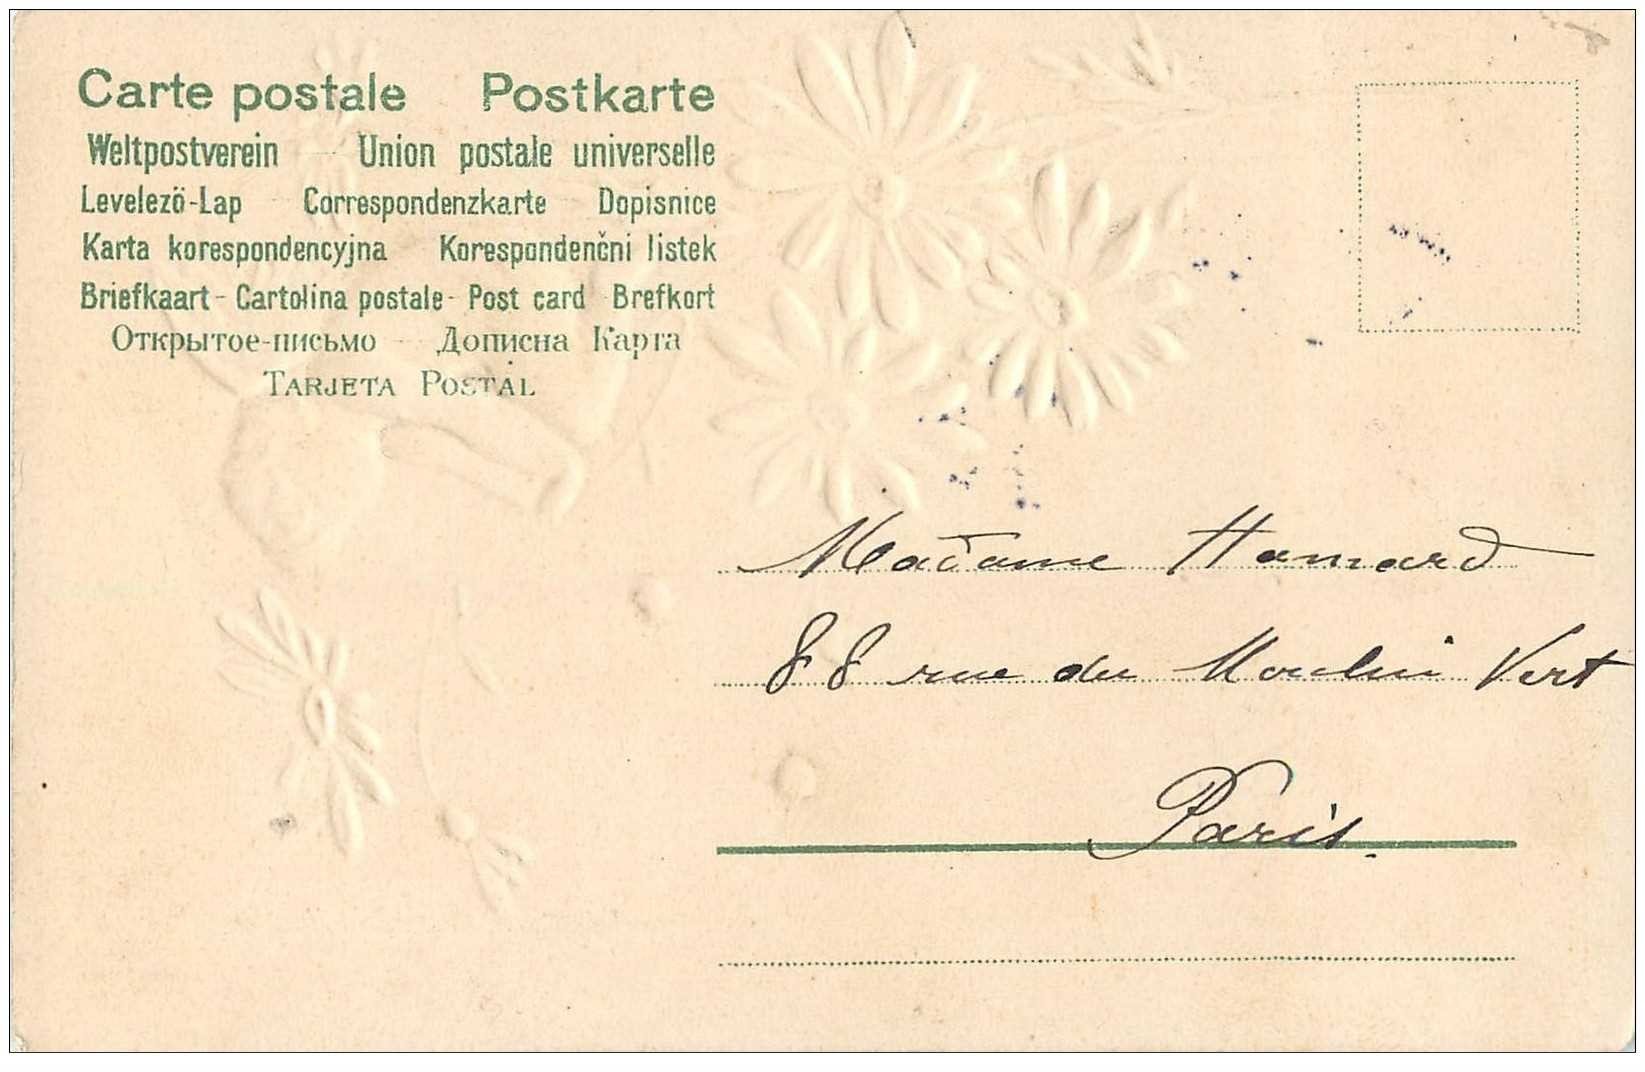 Carte postale Postkarte
Weltpostverein Union postale universelle
Levelezö-Lap Correspondenzkarte Dopisnice
Karta korespondencyjna Korespondenčni listek
Briefkaart - Cartolina postale - Post card Brefkort
Открытое-письмо Дописна Карта
TARJETA POSTAL
Madame Hamard
88 rue du Moulin Vert
Paris.